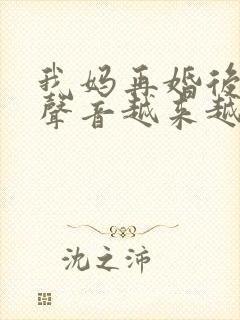 我妈再婚後
聲音越来越
沈之沛